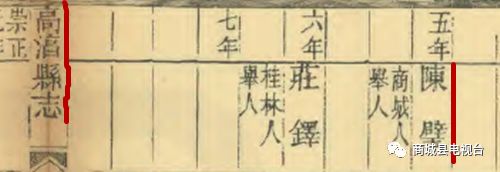 五年
陳璧
商城人
舉人
六年
莊鐸
桂林人
舉人
七年
高湻縣志
崇正
商城县电视台